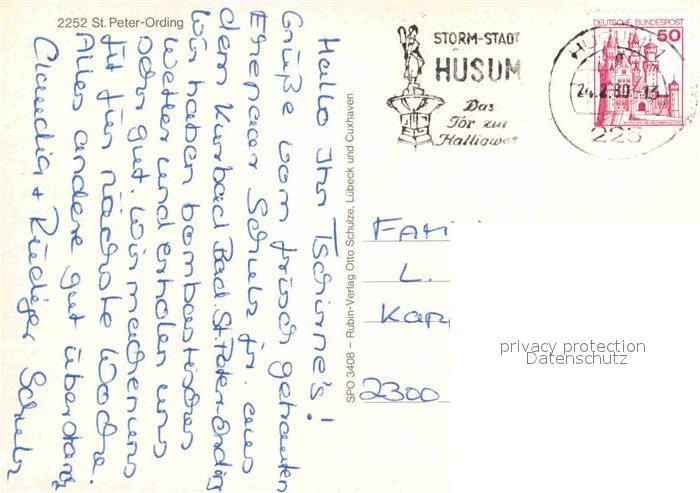 2252 St. Peter-Ording
Hallo Ihr Tschirne's!
Grüße vom frisch getrauten
Ehepaar Schulz jr. aus
dem Kurbad Bad St. Peter-Ording
Wir haben bombastisches
Wetter und erholen uns
sehr gut. Wir machen uns
fit für nächste Woche.
Alles andere gut überstanden
Claudia + Rüdiger Schulz
SPO 3408 – Rubin-Verlag Otto Schulze, Lübeck und Cuxhaven
STORM-STADT
HUSUM
Das
Tor zur
Halligwelt
DEUTSCHE BUNDESPOST
50
24.2.80-13
225
Fami
L.
Kap
2300
privacy protection
Datenschutz